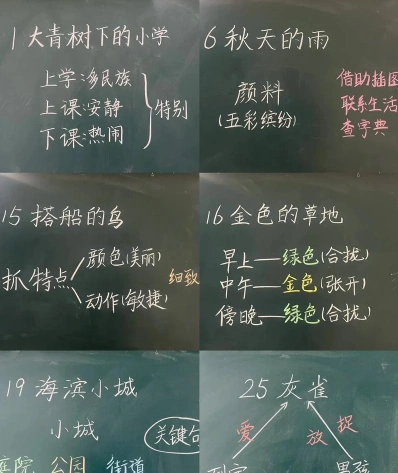 1 大青树下的小学
上学:多民族
上课:安静
下课:热闹
特别
6 秋天的雨
颜料
(五彩缤纷)
借助插图
联系生活
查字典
15 搭船的鸟
抓特点
颜色(美丽)
动作(敏捷)
细致
16 金色的草地
早上——绿色(合拢)
中午——金色(张开)
傍晚——绿色(合拢)
19 海滨小城
小城
关键句
庭院 公园 街道
25 灰雀
爱 放 捉
男孩